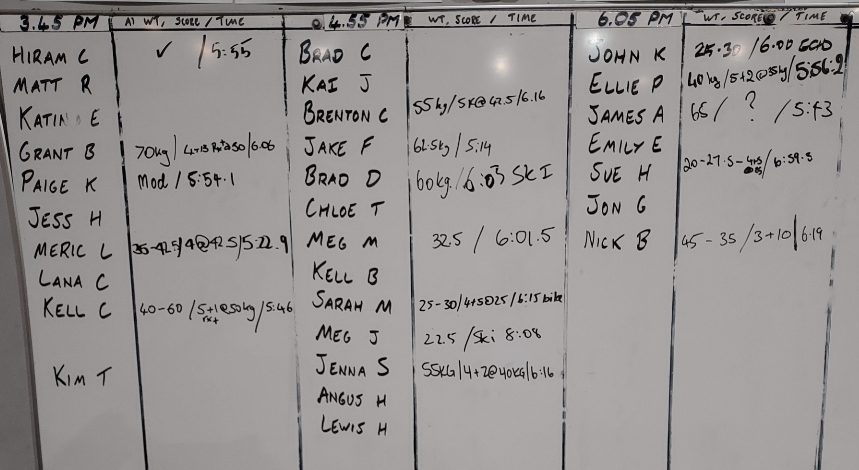 3.45 PM A) WT, SCORE / TIME
HIRAM C ✓ / 5:55
MATT R
KATIN E
GRANT B 70kg / 4+13 @50 / 6.06
PAIGE K Mod / 5:54.1
JESS H
MERIC L 35-42.5 / 4@42.5 / 5:22.9
LANA C
KELL C 40-60 / 5+1@50kg / 5:46
rx+
KIM T
4.55 PM WT, SCORE / TIME
BRAD C
KAI J
BRENTON C 55kg / 5R@42.5 / 6.16
JAKE F 62.5kg / 5:14
BRAD D 60kg / 6:03 SKI
CHLOE T
MEG M 32.5 / 6:01.5
KELL B
SARAH M 25-30 / 4+5@25 / 6:15 bike
MEG J 22.5 / Ski 8:08
JENNA S 55KG | 4+2@40KG | 6:16
ANGUS H
LEWIS H
6.05 PM WT, SCORE / TIME
JOHN K 25.30 / 6.00
ELLIE P 40kg / 5+2@35kg / 5:56.2
JAMES A 65 / ? / 5:43
EMILY E
SUE H 20-27.5 - / 6:59.5
JON G
NICK B 45-35 / 3+10 | 6:19